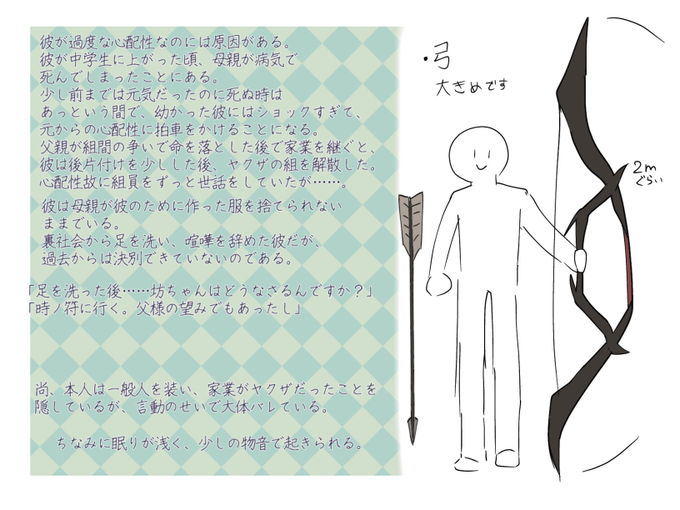 彼が過度な心配性なのには原因がある。
彼が中学生に上がった頃、母親が病気で
死んでしまったことにある。
少し前までは元気だったのに死ぬ時は
あっという間で、幼かった彼にはショックすぎて、
元からの心配性に拍車をかけることになる。
父親が組間の争いで命を落とした後で家業を継ぐと、
彼は後片付けを少しした後、ヤクザの組を解散した。
心配性故に組員をずっと世話をしていたが……。
彼は母親が彼のために作った服を捨てられない
ままでいる。
裏社会から足を洗い、喧嘩を辞めた彼だが、
過去からは決別できていないのである。
「足を洗った後……坊ちゃんはどうなさるんですか？」
「時ノ符に行く。父様の望みでもあったし」
尚、本人は一般人を装い、家業がヤクザだったことを
隠しているが、言動のせいで大体バレている。
ちなみに眠りが浅く、少しの物音で起きられる。
・弓
大きめです
2m
ぐらい